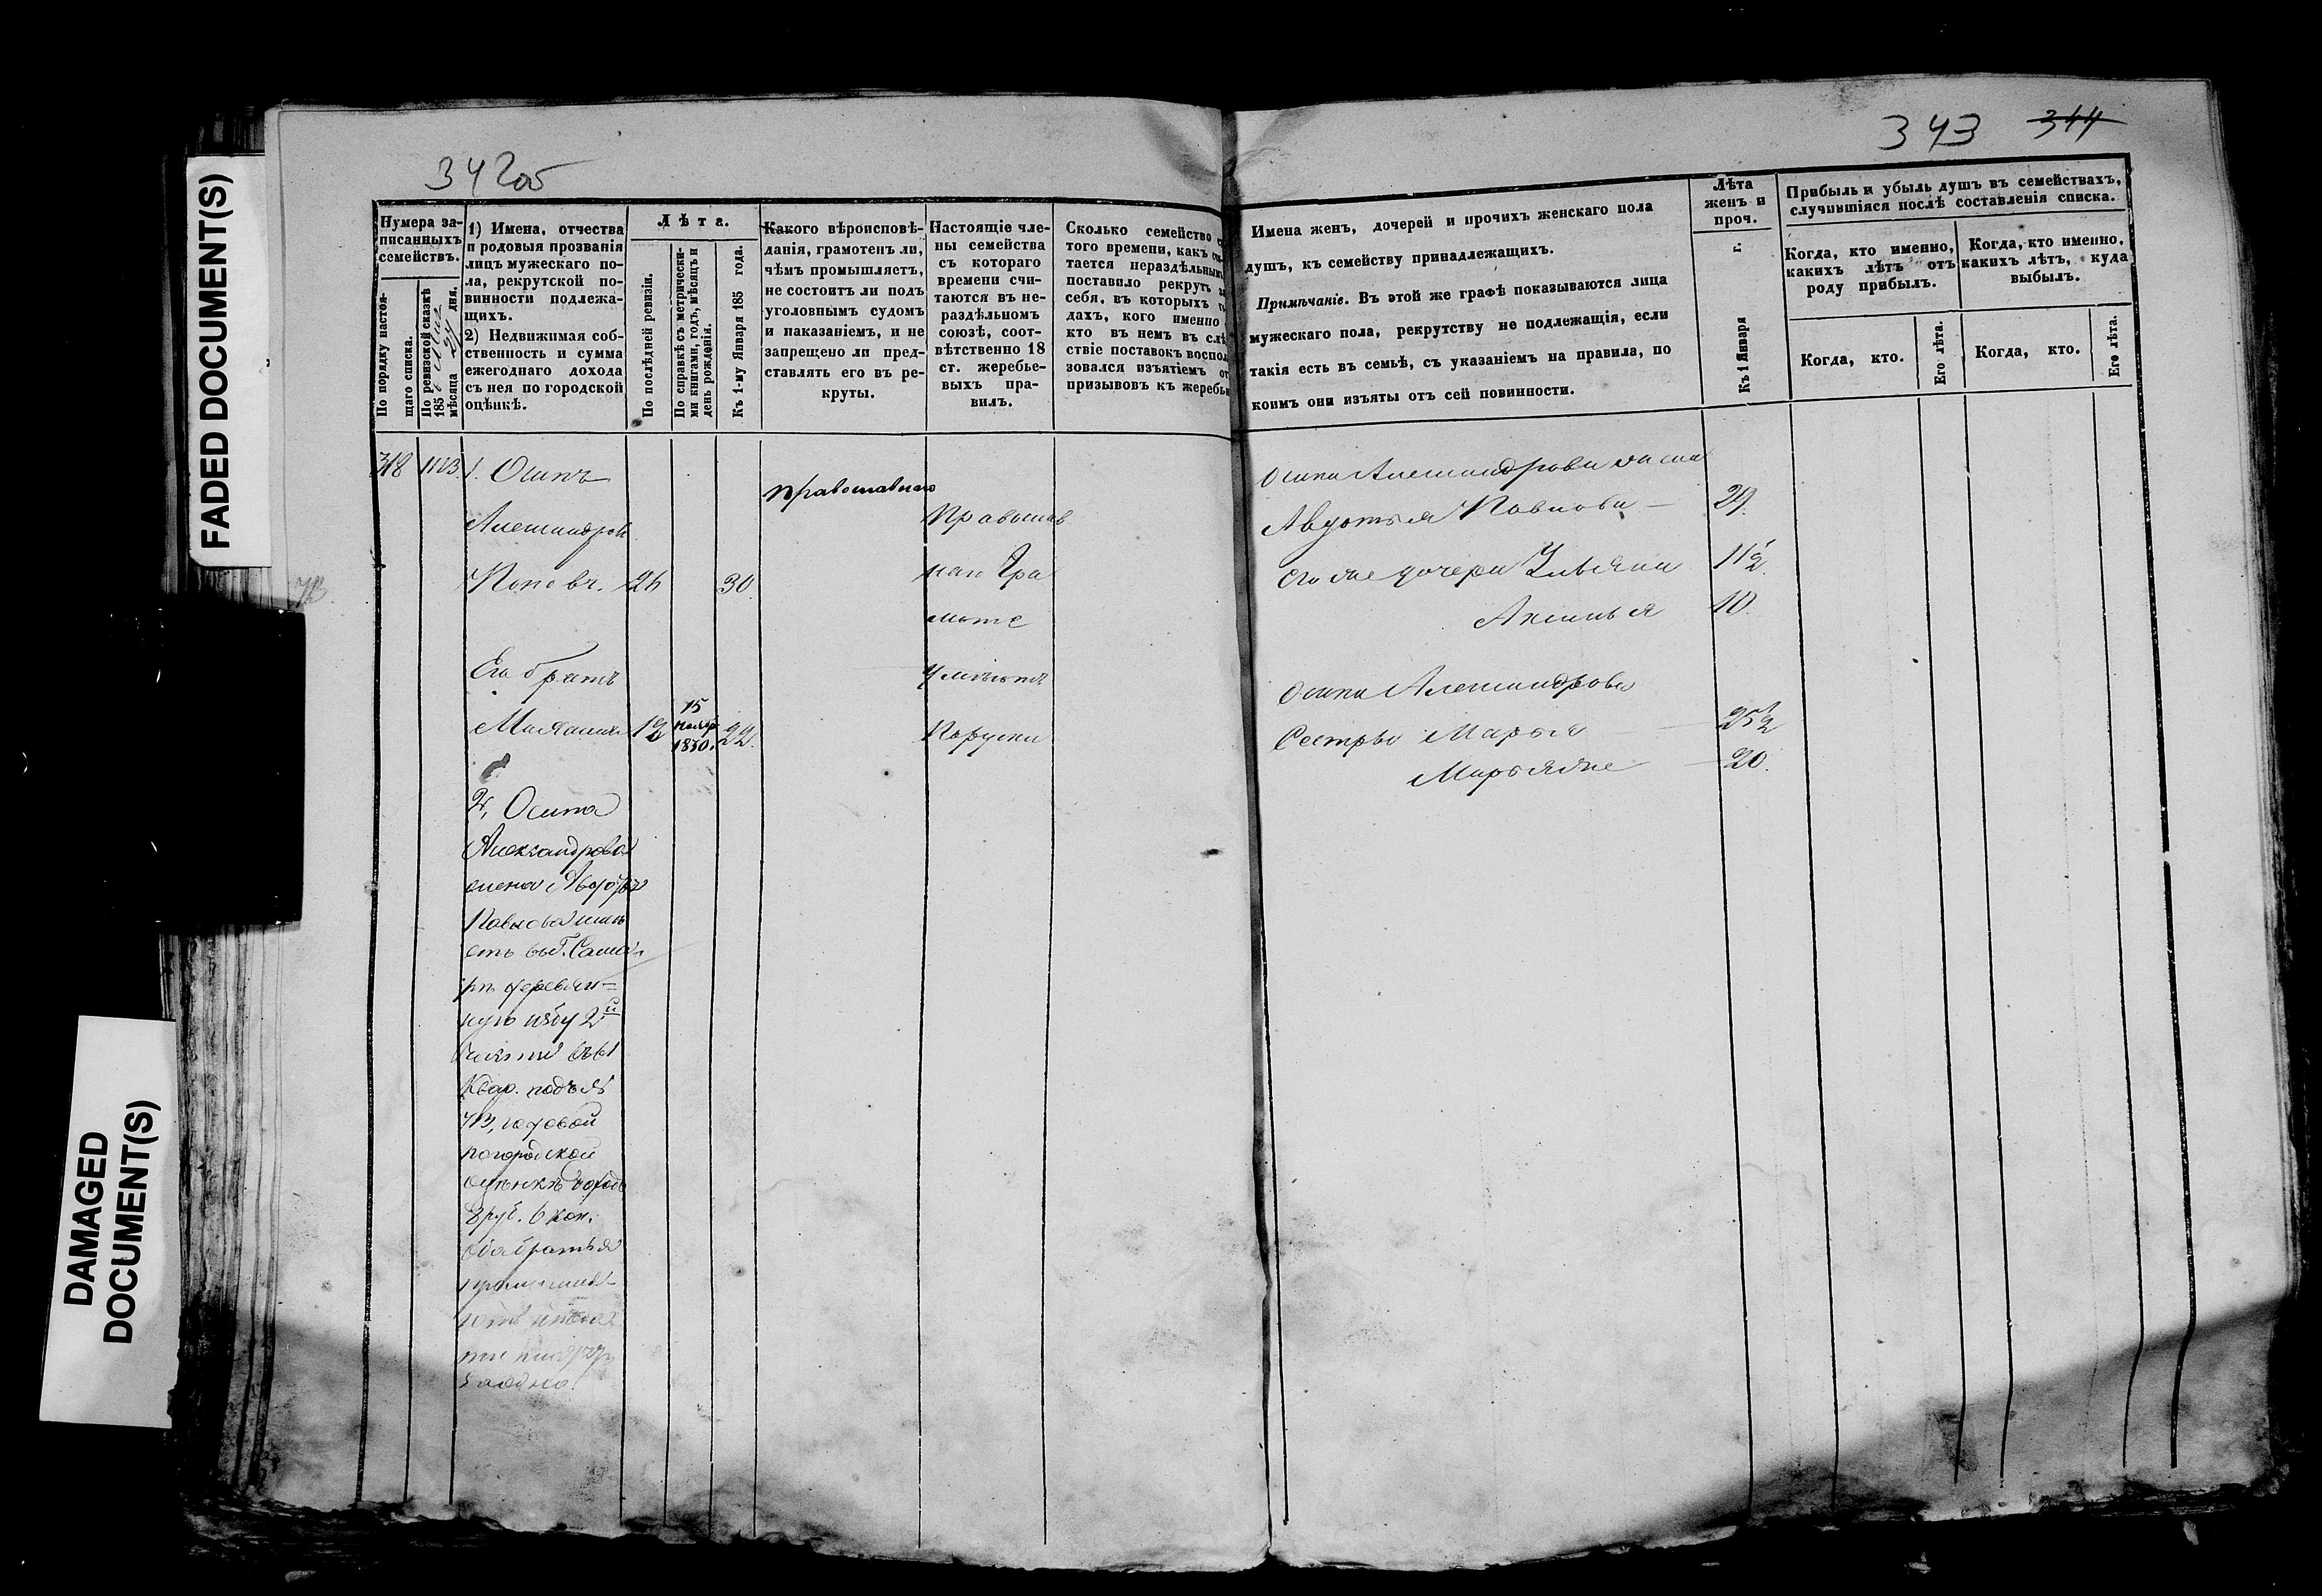 FADED DOCUMENT(S)
DAMAGED
DOCUMENT(S)
342об
Нумера за-
писанныхъ
семействъ.
По порядку настоя-
щаго списка.
По ревизской сказкѣ
185
мѣсяца 24 дня.
1) Имена, отчества
и родовыя прозванія
лицъ мужескаго по-
ла, рекрутской по-
винности подлежа-
щихъ.
2) Недвижимая соб-
ственность и сумма
ежегоднаго дохода
съ нея по городской
оцѣнкѣ.
Лѣта.
По послѣдней ревизіи.
По справкѣ съ метрически-
ми книгами, годъ, мѣсяцъ и
день рожденія.
Къ 1-му Января 185 года.
Какого вѣроисповѣ-
данія, грамотенъ ли,
чѣмъ промышляетъ,
не состоитъ ли подъ
уголовнымъ судомъ
и наказаніемъ, и не
запрещено ли пред-
ставлять его въ ре-
круты.
Настоящіе чле-
ны семейства
съ котораго
времени счи-
таются въ не-
раздѣльномъ
союзѣ, соот-
вѣтственно 18
ст. жеребье-
выхъ пра-
вилъ.
Сколько семейство
того времени, какъ
тается нераздѣльнымъ
поставило рекрутъ
себя, въ которыхъ
дахъ, кого именно
кто въ немъ въ слѣ
ствіе поставокъ воспол
зовался изъятіемъ от
призывовъ къ жеребью
318
1. Осипъ
Александровъ
Поповъ. 26 30.
православнаго
Православ
Его братъ
15
Ноябр
1830.
12 22.
2, Осипа
Александрова
жена Авдотья
Павлова имѣ
етъ въ Г. Сама-
рѣ деревян-
ную избу 2й
части въ 61
Квар. подъ №
713, годовой
погородской
оцѣнкѣ доходъ
8 руб. 6 коп.
Оба братья
343 344
Имена женъ, дочерей и прочихъ женскаго пола
душъ, къ семейству принадлежащихъ.
Примѣчаніе. Въ этой же графѣ показываются лица
мужескаго пола, рекрутству не подлежащія, если
такія есть въ семьѣ, съ указаніемъ на правила, по
коимъ они изъяты отъ сей повинности.
Лѣта
женъ и
проч.
Къ 1 Января г.
Прибыль и убыль душъ въ семействахъ,
случившіяся послѣ составленія списка.
Когда, кто именно,
какихъ лѣтъ отъ
роду прибылъ.
Когда, кто именно,
какихъ лѣтъ, куда
выбылъ.
Когда, кто.
Его лѣта.
Когда, кто.
Его лѣта.
Осипа Александрова жена
Авдотья Павлова — 29.
Его же дочери Ульяна 11½.
Аксинья 10.
Осипа Александрова
Сестры Марья 25½
20.